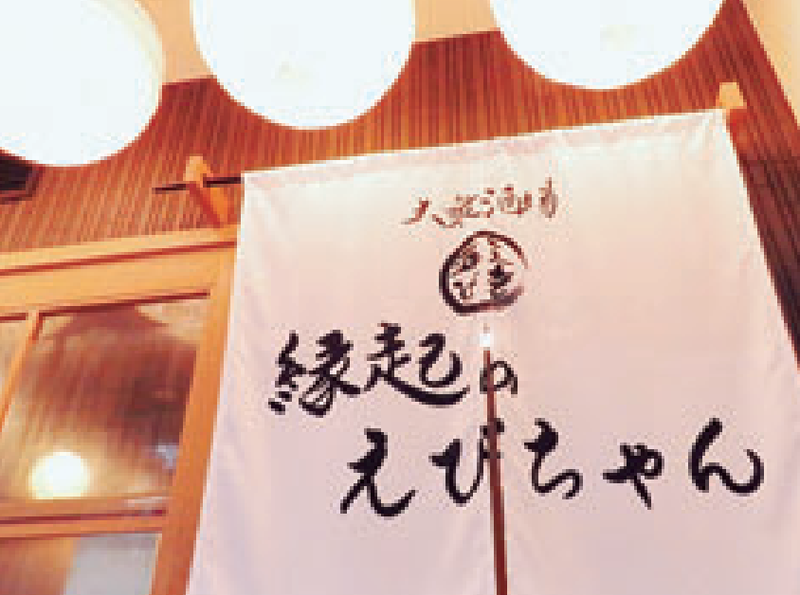 大衆酒場
縁起の
えびちゃん